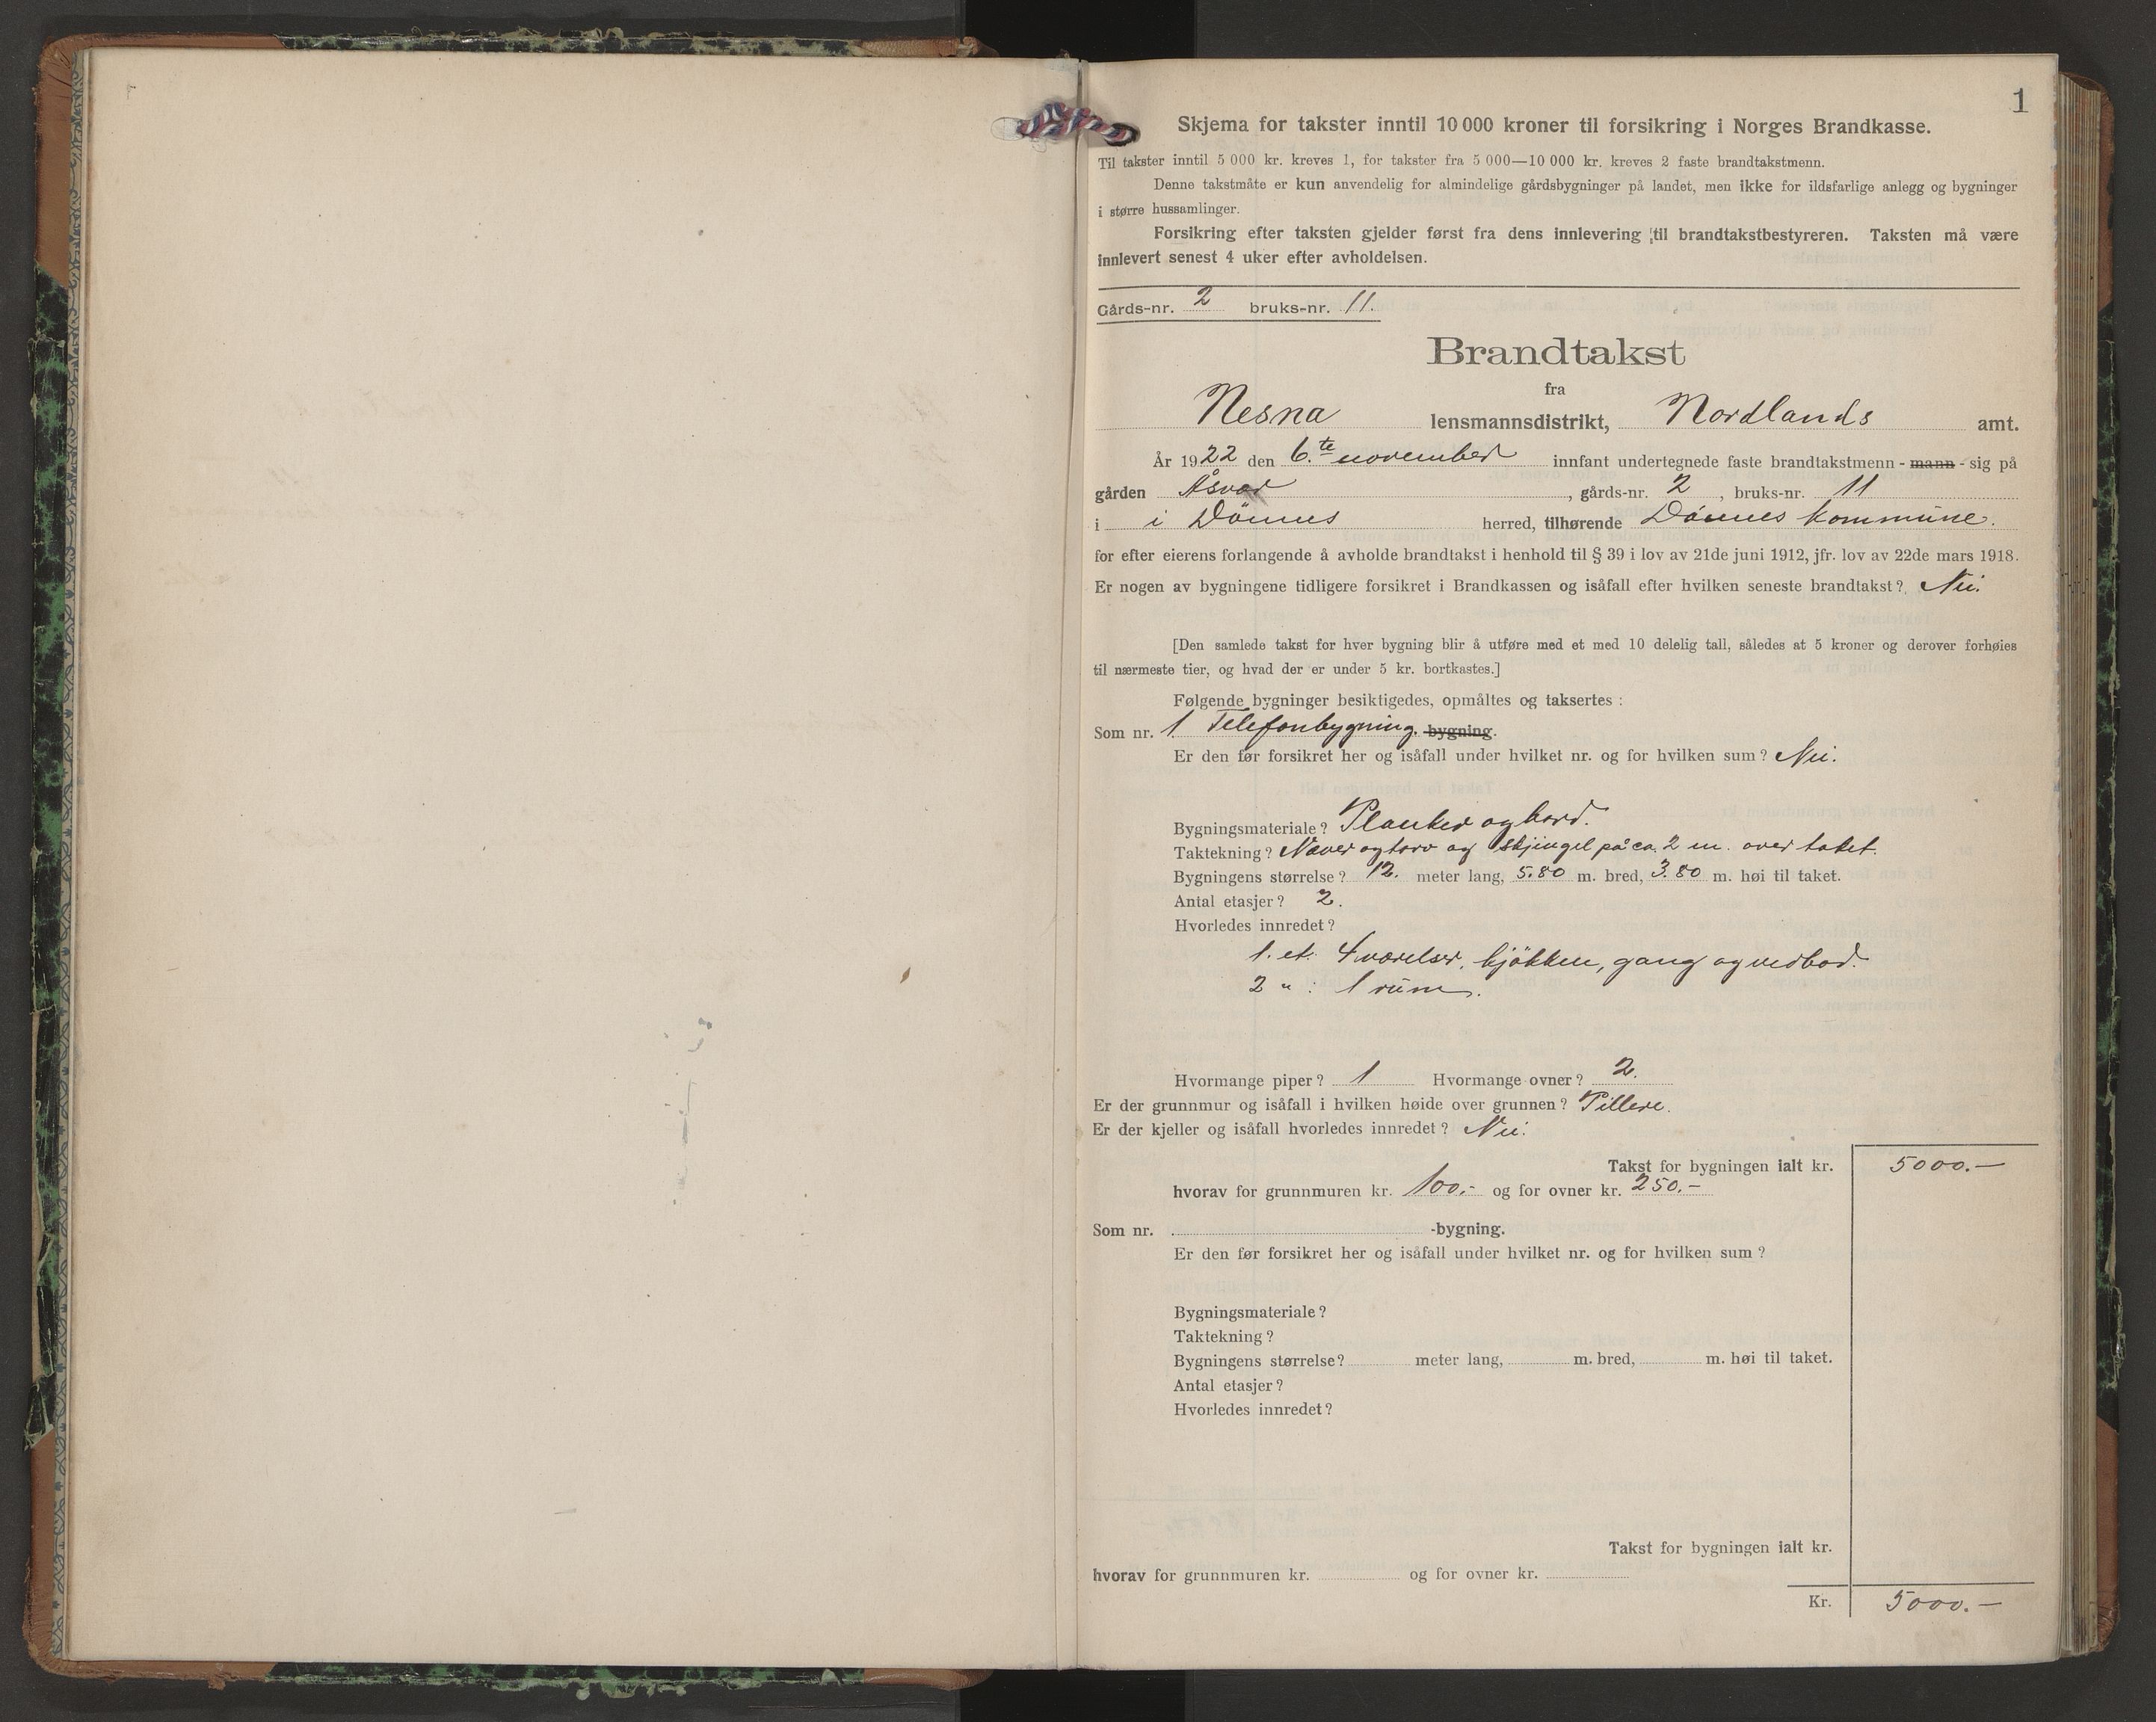 1
Skjema for takster inntil 10 000 kroner til forsikring i Norges Brandkasse.
Til takster inntil 5 000 kr. kreves 1, for takster fra 5 000—10 000 kr. kreves 2 faste brandtakstmenn.
Denne takstmåte er kun anvendelig for almindelige gårdsbygninger på landet, men ikke for ildsfarlige anlegg og bygninger
i større hussamlinger.
Forsikring efter taksten gjelder først fra dens innlevering til brandtakstbestyreren. Taksten må være
innlevert senest 4 uker efter avholdelsen.
Gårds-nr. 2 bruks-nr. 11.
Brandtakst
fra
Nesna lensmannsdistrikt, Nordlands amt.
År 1922 den 6.te november innfant undertegnede faste brandtakstmenn - mann - sig på
gården Åsvær, gårds-nr. 2, bruks-nr. 11
i i Dönnes herred, tilhørende Dönnes kommune.
for efter eierens forlangende å avholde brandtakst i henhold til § 39 i lov av 21de juni 1912, jfr. lov av 22de mars 1918.
Er nogen av bygningene tidligere forsikret i Brandkassen og isåfall efter hvilken seneste brandtakst? Nei.
[Den samlede takst for hver bygning blir å utføre med et med 10 delelig tall, således at 5 kroner og derover forhøies
til nærmeste tier, og hvad der er under 5 kr. bortkastes.]
Følgende bygninger besiktigedes, opmåltes og taksertes :
Som nr. 1. Telefonbygning. bygning.
Er den før forsikret her og isåfall under hvilket nr. og for hvilken sum? Nei.
Bygningsmateriale? Planker og bord.
Taktekning? Næver og torv og skjingel på ca. 2 m. over taket.
Bygningens størrelse? 12. meter lang, 5.80 m. bred, 3.80 m. høi til taket.
Antal etasjer? 2.
Hvorledes innredet?
1. et. 4 værelser, kjökken, gang og vedbod.
2 " : 1 rum.
Hvormange piper? 1 Hvormange ovner? 2.
Er der grunnmur og isåfall i hvilken høide over grunnen? Pillere.
Er der kjeller og isåfall hvorledes innredet? Nei.
Takst for bygningen ialt kr. 5000.—
hvorav for grunnmuren kr. 100.- og for ovner kr. 250.-
Som nr. -bygning.
Er den før forsikret her og isåfall under hvilket nr. og for hvilken sum ?
Bygningsmateriale?
Taktekning?
Bygningens størrelse? meter lang, m. bred, m. høi til taket.
Antal etasjer?
Hvorledes innredet?
Takst for bygningen ialt kr.
hvorav for grunnmuren kr. og for ovner kr.
Kr. 5000.—